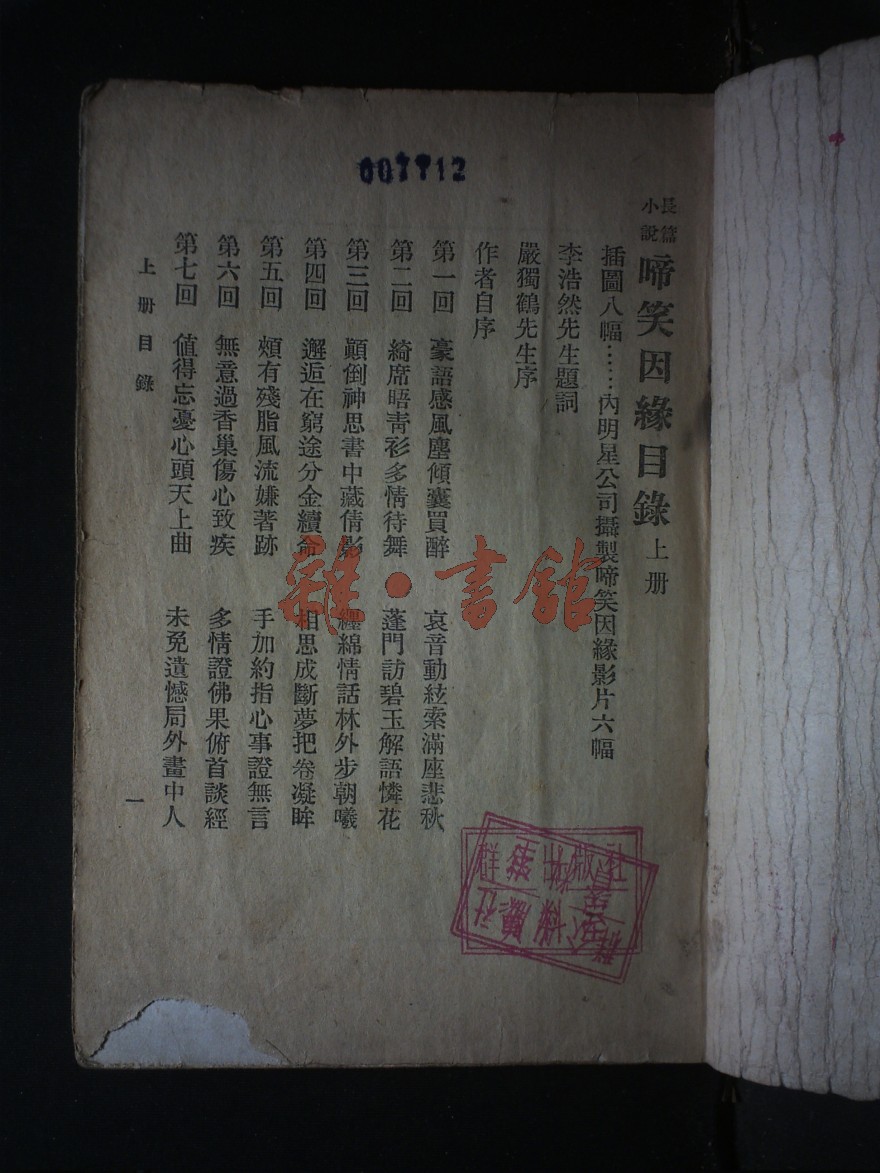 007712
長篇小說 啼笑因緣目錄 上册
插圖八幅……內明星公司攝製啼笑因緣影片六幅
李浩然先生題詞
嚴獨鶴先生序
作者自序
第一回 豪語感風塵傾囊買醉 哀音動絃索滿座悲秋
第二回 綺席晤靑衫多情待舞 蓬門訪碧玉解語憐花
第三回 顚倒神思書中藏倩影 纏綿情話林外步朝曦
第四回 邂逅在窮途分金續命 相思成斷夢把卷凝眸
第五回 頰有殘脂風流嫌著跡 手加約指心事證無言
第六回 無意過香巢傷心致疾 多情證佛果俯首談經
第七回 値得忘憂心頭天上曲 未免遺憾局外畫中人
上册目錄
一
雜·書館